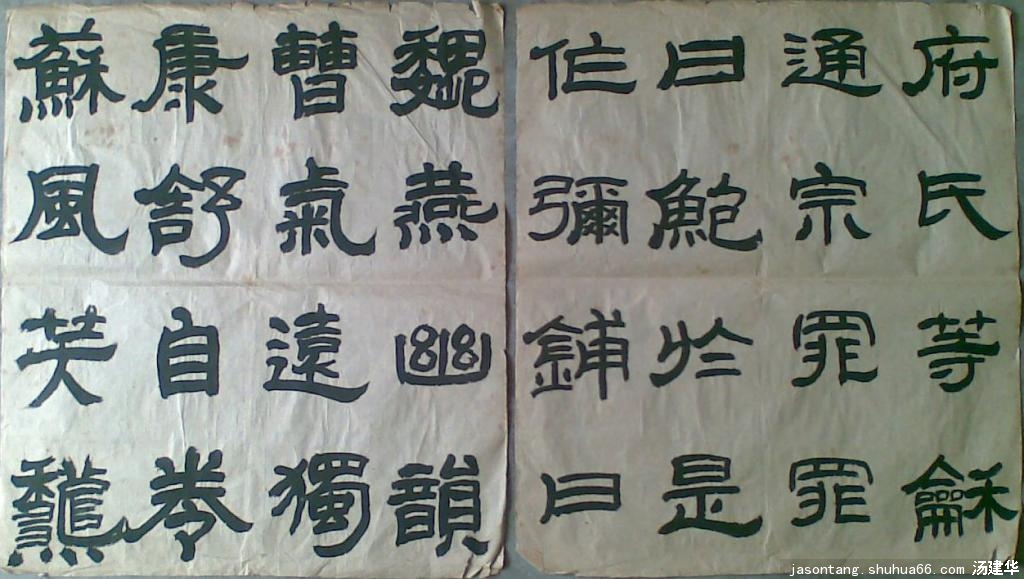 府氏等龢
通宗罪罪
曰鮑於是
作彌鋪曰
魏燕幽韻
曹氣遠獨
康舒自卷
蘇風笑
jasontang.shuhua66.com 汤建华